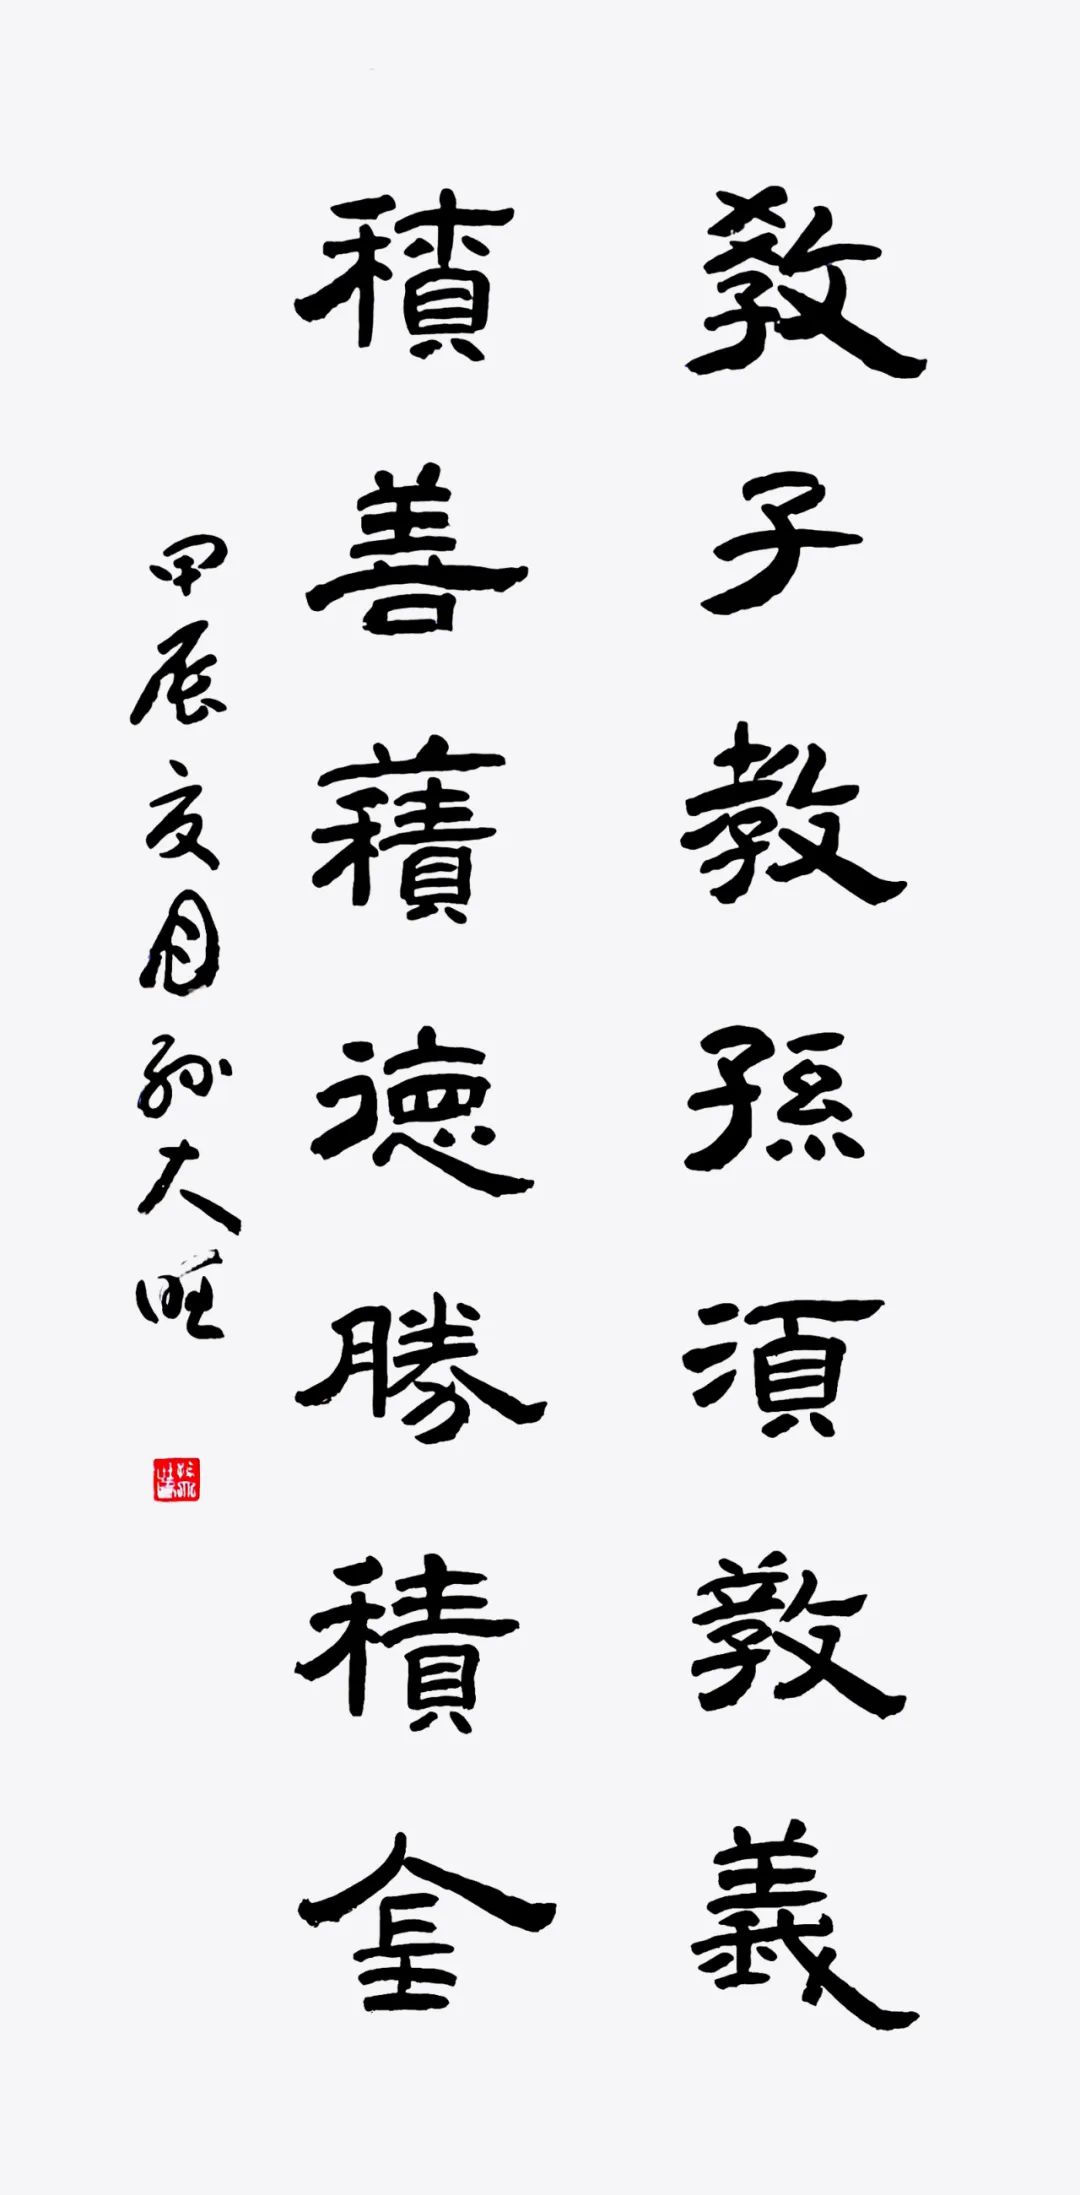 敎子教孫須教義
積善積德勝積金
甲辰夏月孙大旺